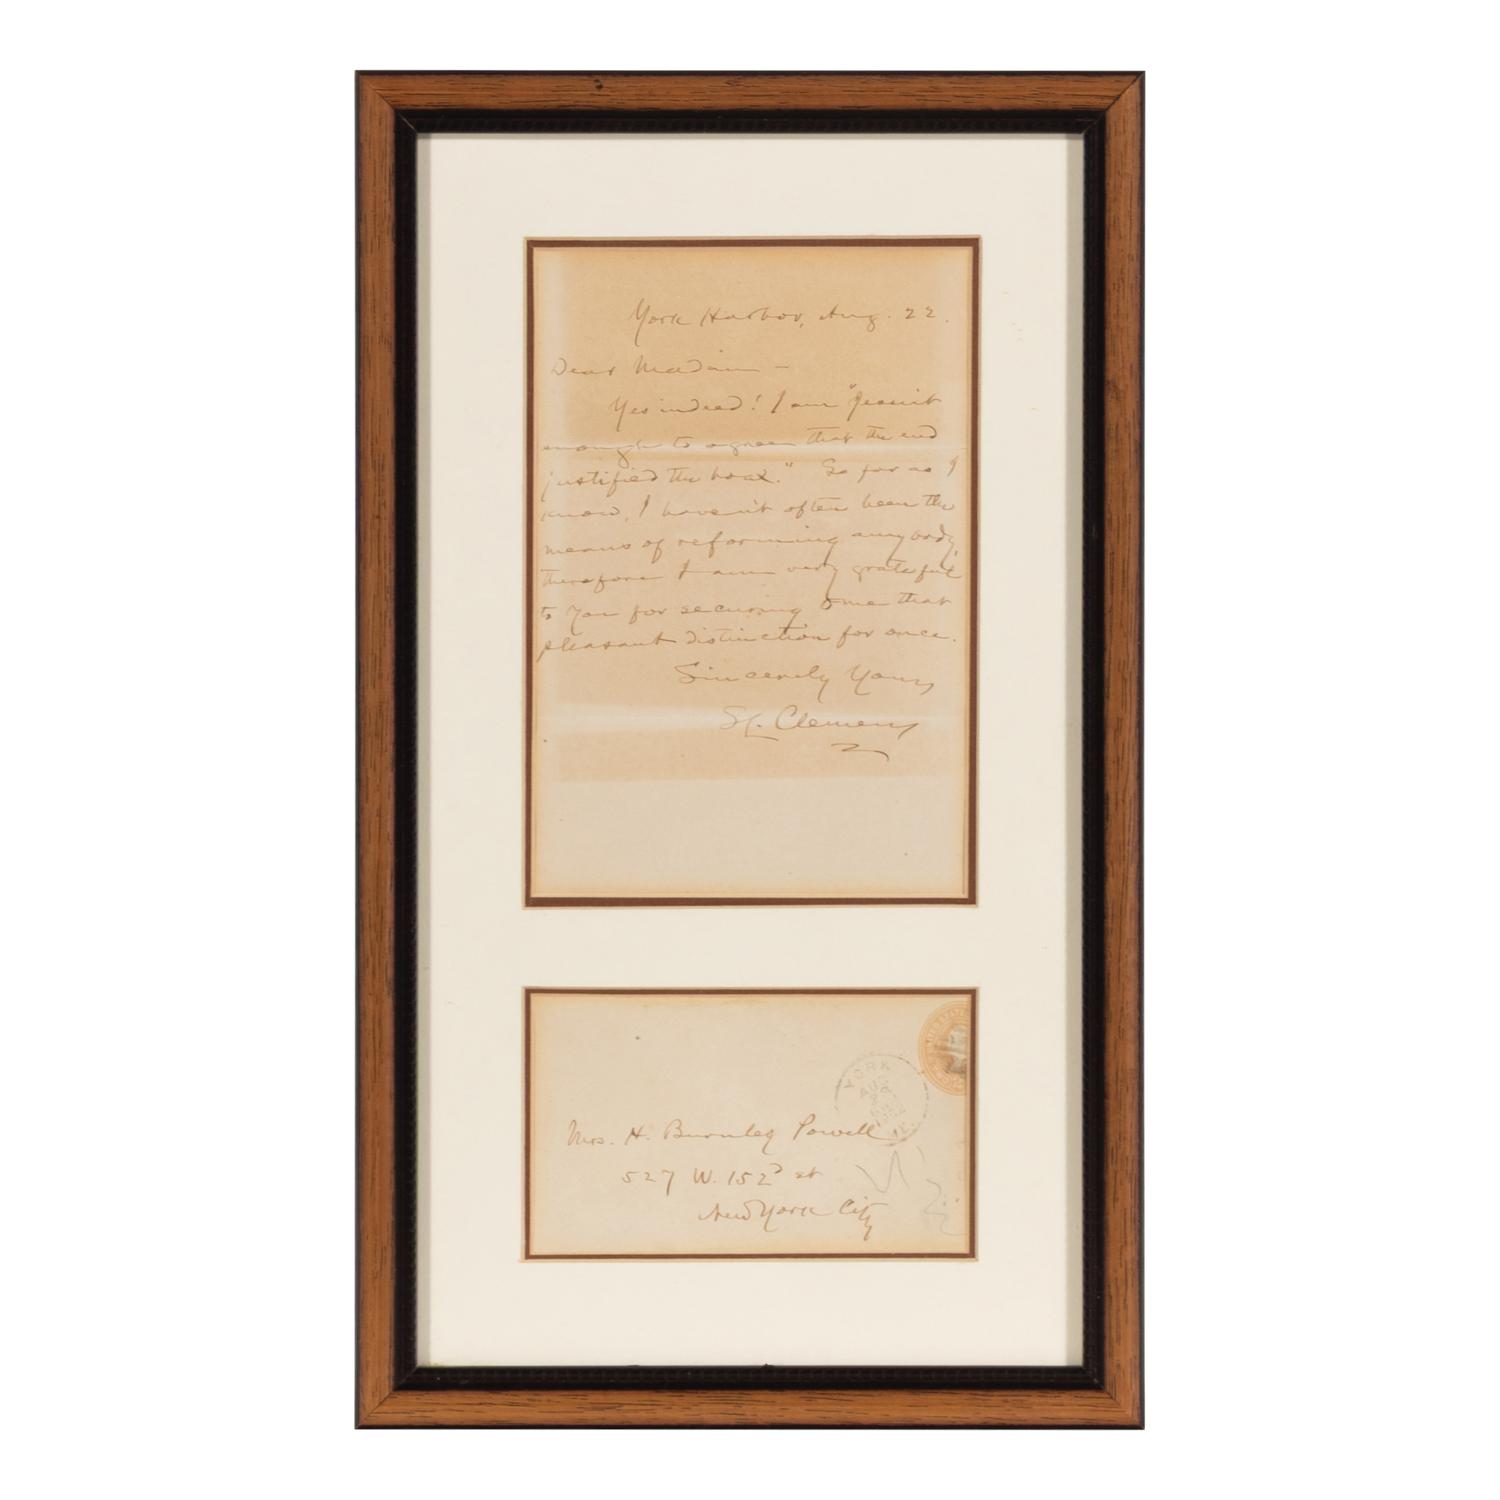 York Harbor, Aug. 22.
Dear Madam —
Yes indeed! I am "Jesuit
enough to agree that the end
justified the hoax." So far as I
know, I haven't often been the
means of reforming anybody,
therefore I am very grateful
to you for securing to me that
pleasant distinction for once.
Sincerely Yours
SL. Clemens
YORK
AUG
ME.
Mrs. H. Burnley Powell
527 W. 152d st
New York City